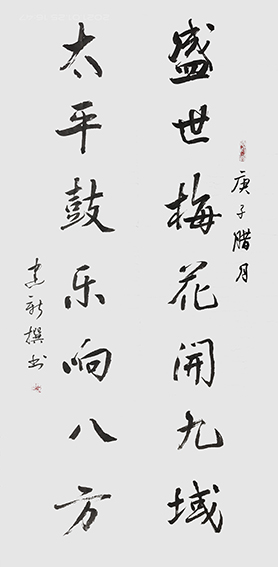 庚子腊月
盛世梅花開九域
太平鼓乐响八方
建新撰书